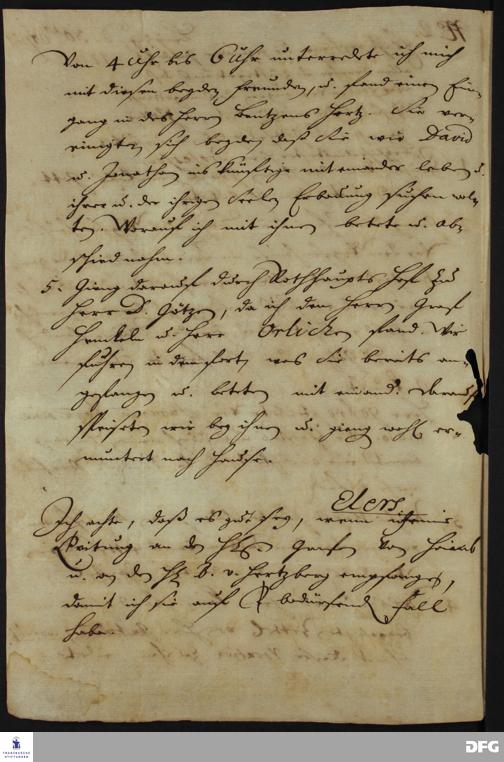 Von 4 Uhr bis 6 Uhr unterredete ich mich
mit diesen beyden Freunden, u. fand einen Ein-
gang in des Herrn Bentzens Hertz. Sie ver-
einigten sich beyde daß sie wie David
u. Jonathan ins künftige mit einander leben u.
ihrer u. der ihrigen Seelen Erbauung suchen wol-
ten. Worauf ich mit ihnen betete u. ab-
schied nahm.
5. Gieng darauf durch Rothhaupts Hof zu
Herr D. Götzen, da ich den Herrn Graf
Henckeln u. Herr Oelicken fand. Wir
fuhren in dem fort, was sie bereits an-
gefangen u. beteten mit einand. Darauf
speiseten wir bey ihnen u. gieng wohl er-
muntert nach Hause.
Elers
Ich achte, daß es gut sey, wenn
Quitung an den H. Grafen von
u. an den H. B. v. Hertzberg empfange,
damit ich sie auf bedürfend Fall
habe.
FRANCKESCHE STIFTUNGEN
DFG